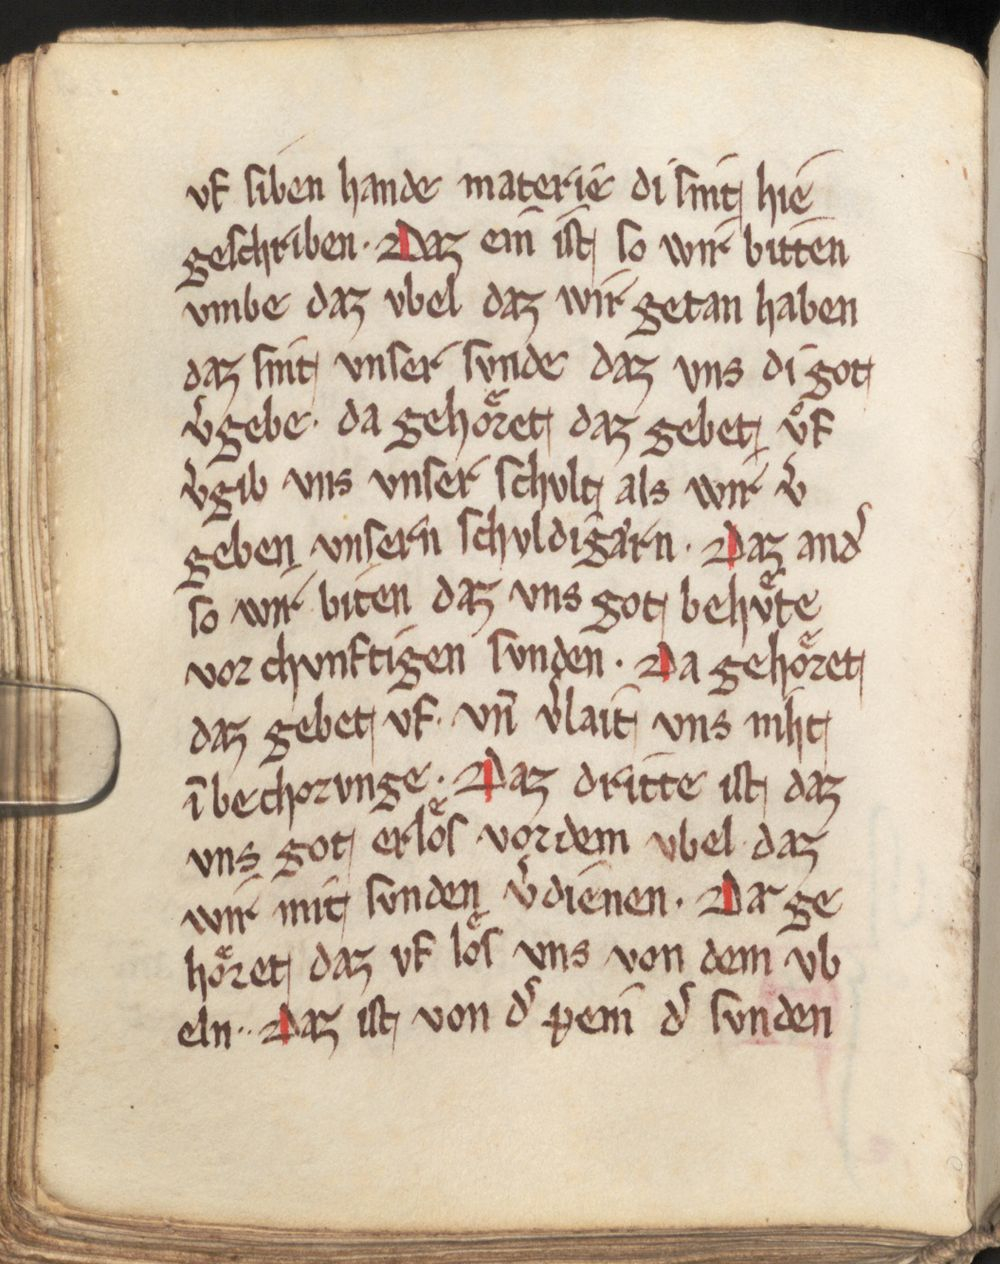 vf siben hande materie di sint hie
geschriben · Daz ein ist so wir bitten
vmbe daz vbel daz wir getan haben
daz sint vnser svnde daz vns di got
v͛gebe · da gehoͤret daz gebet vͦf
v͛gib vns vnser schvlt als wir v͛
geben vnsern schvldigarn · Daz and͛
so wir biten daz vns got behvͤte
vor chvnftigen svnden · Da gehoͤret
daz gebet vf · vn̄ v͛lait vns niht
ī bechorvnge · Daz dritte ist daz
vns got erloͤs vor dem vbel daz
wir mit svnden v͛dienen · Dar ge
hoͤret daz vf loͤs vns von dem vb
eln ·· Daz ist von d͛ pein d͛ svnden